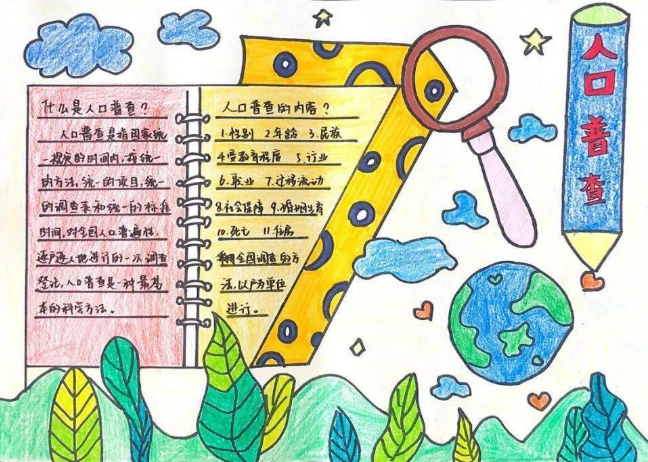 人口普查
什么是人口普查？
人口普查是指国家统
一规定的时间内，按统一
的方法，统一的项目，统一
的调查表和统一的标准
时间，对全国人口普遍地、
逐户逐人地进行的一次调查
登记，人口普查是一种最基
本的科学方法。
人口普查的内容？
1.性别 2.年龄 3.民族
4.受教育程度 5.行业
6.职业 7.迁移流动
8.社会保障 9.婚姻生育
10.死亡 11.住房
全国调查的方
法，以户为单位
进行。